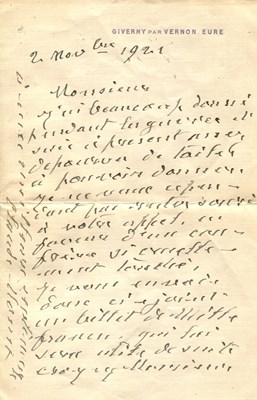 GIVERNY PAR VERNON EURE
2 Nov bre 1921
Monsieur
j'ai beaucoup donné
pendant la guerre et
suis à present assez
dépourvu de toiles
à pouvoir donner
je ne veux cepen-
dant pas rester sourd
à votre appel, en
faveur d'un con-
frère si cruelle-
ment touché,
je vous envoie
donc ci-joint
un billet de mille
francs, qui lui
sera utile de suite
croyez Monsieur
Claude Monet